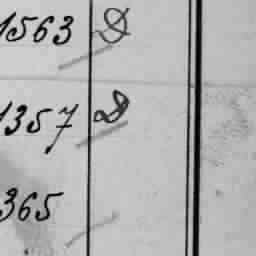 1563 D
1357 D
365